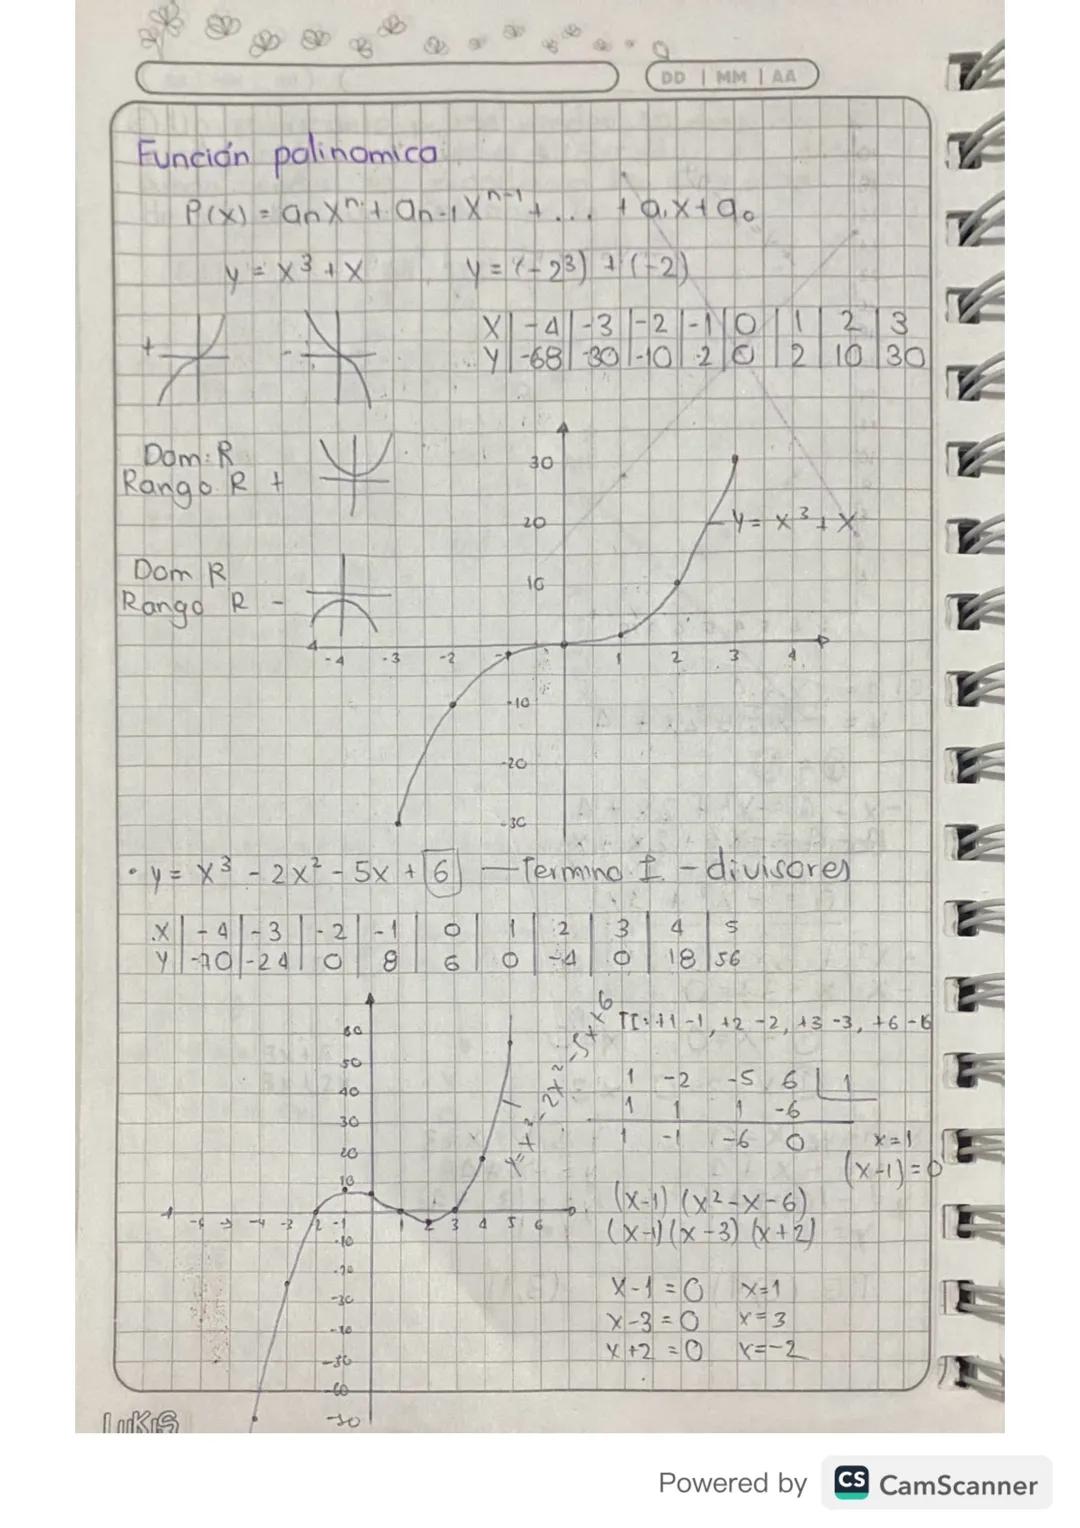 DD | MM | AA
Función polinomica
P(x) = anxⁿ + an-1xⁿ⁻¹ + ... + a₁x + a₀
y = x³ + x    y = (-2³) + (-2)
X | -4 | -3 | -2 | -1 | 0 | 1 | 2 | 3
Y | -68 | -30 | -10 | -2 | 0 | 2 | 10 | 30
+    -
Dom: R
Rango R +
Dom R
Rango R -
30
20
10
-4 -3 -2 -1 1 2 3 4
-10
-20
-30
y = x³ + x
• y = x³ - 2x² - 5x + 6 — Termino I - divisores
X | -4 | -3 | -2 | -1 | 0 | 1 | 2 | 3 | 4 | 5
Y | -70 | -24 | 0 | 8 | 6 | 0 | -4 | 0 | 18 | 56
60
50
40
30
20
10
-4 -3 -2 -1 1 2 3 4 5 6
-10
-20
-30
-60
TI: +1 -1, +2 -2, +3 -3, +6 -6
1 -2 -5 6 | 1
1 1 -6
1 -1 -6 0    x=1
(x-1)=0
(x-1) (x²-x-6)
(x-1)(x-3)(x+2)
x-1 = 0    x=1
x-3 = 0    x=3
x+2 = 0    x=-2
LUKIS
Powered by CS CamScanner